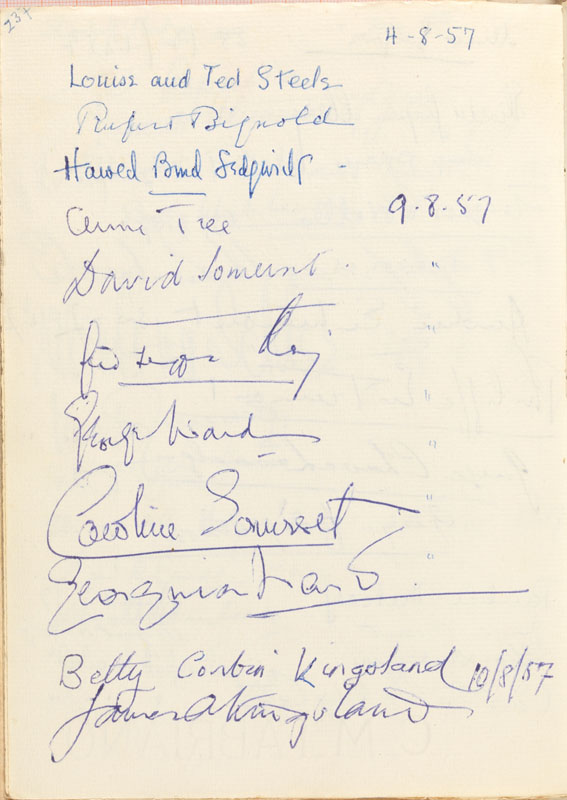 237
4-8-57
Louise and Ted Steele
Rufus Bignold
Howed Bmd Sedgwick -
Anne Tree 9.8.57
David Somerset. "
"
"
George Ward "
Caroline Somerset "
Georgina Ward "
Betty Corbin Kingsland 10/8/57
James A Kingsland